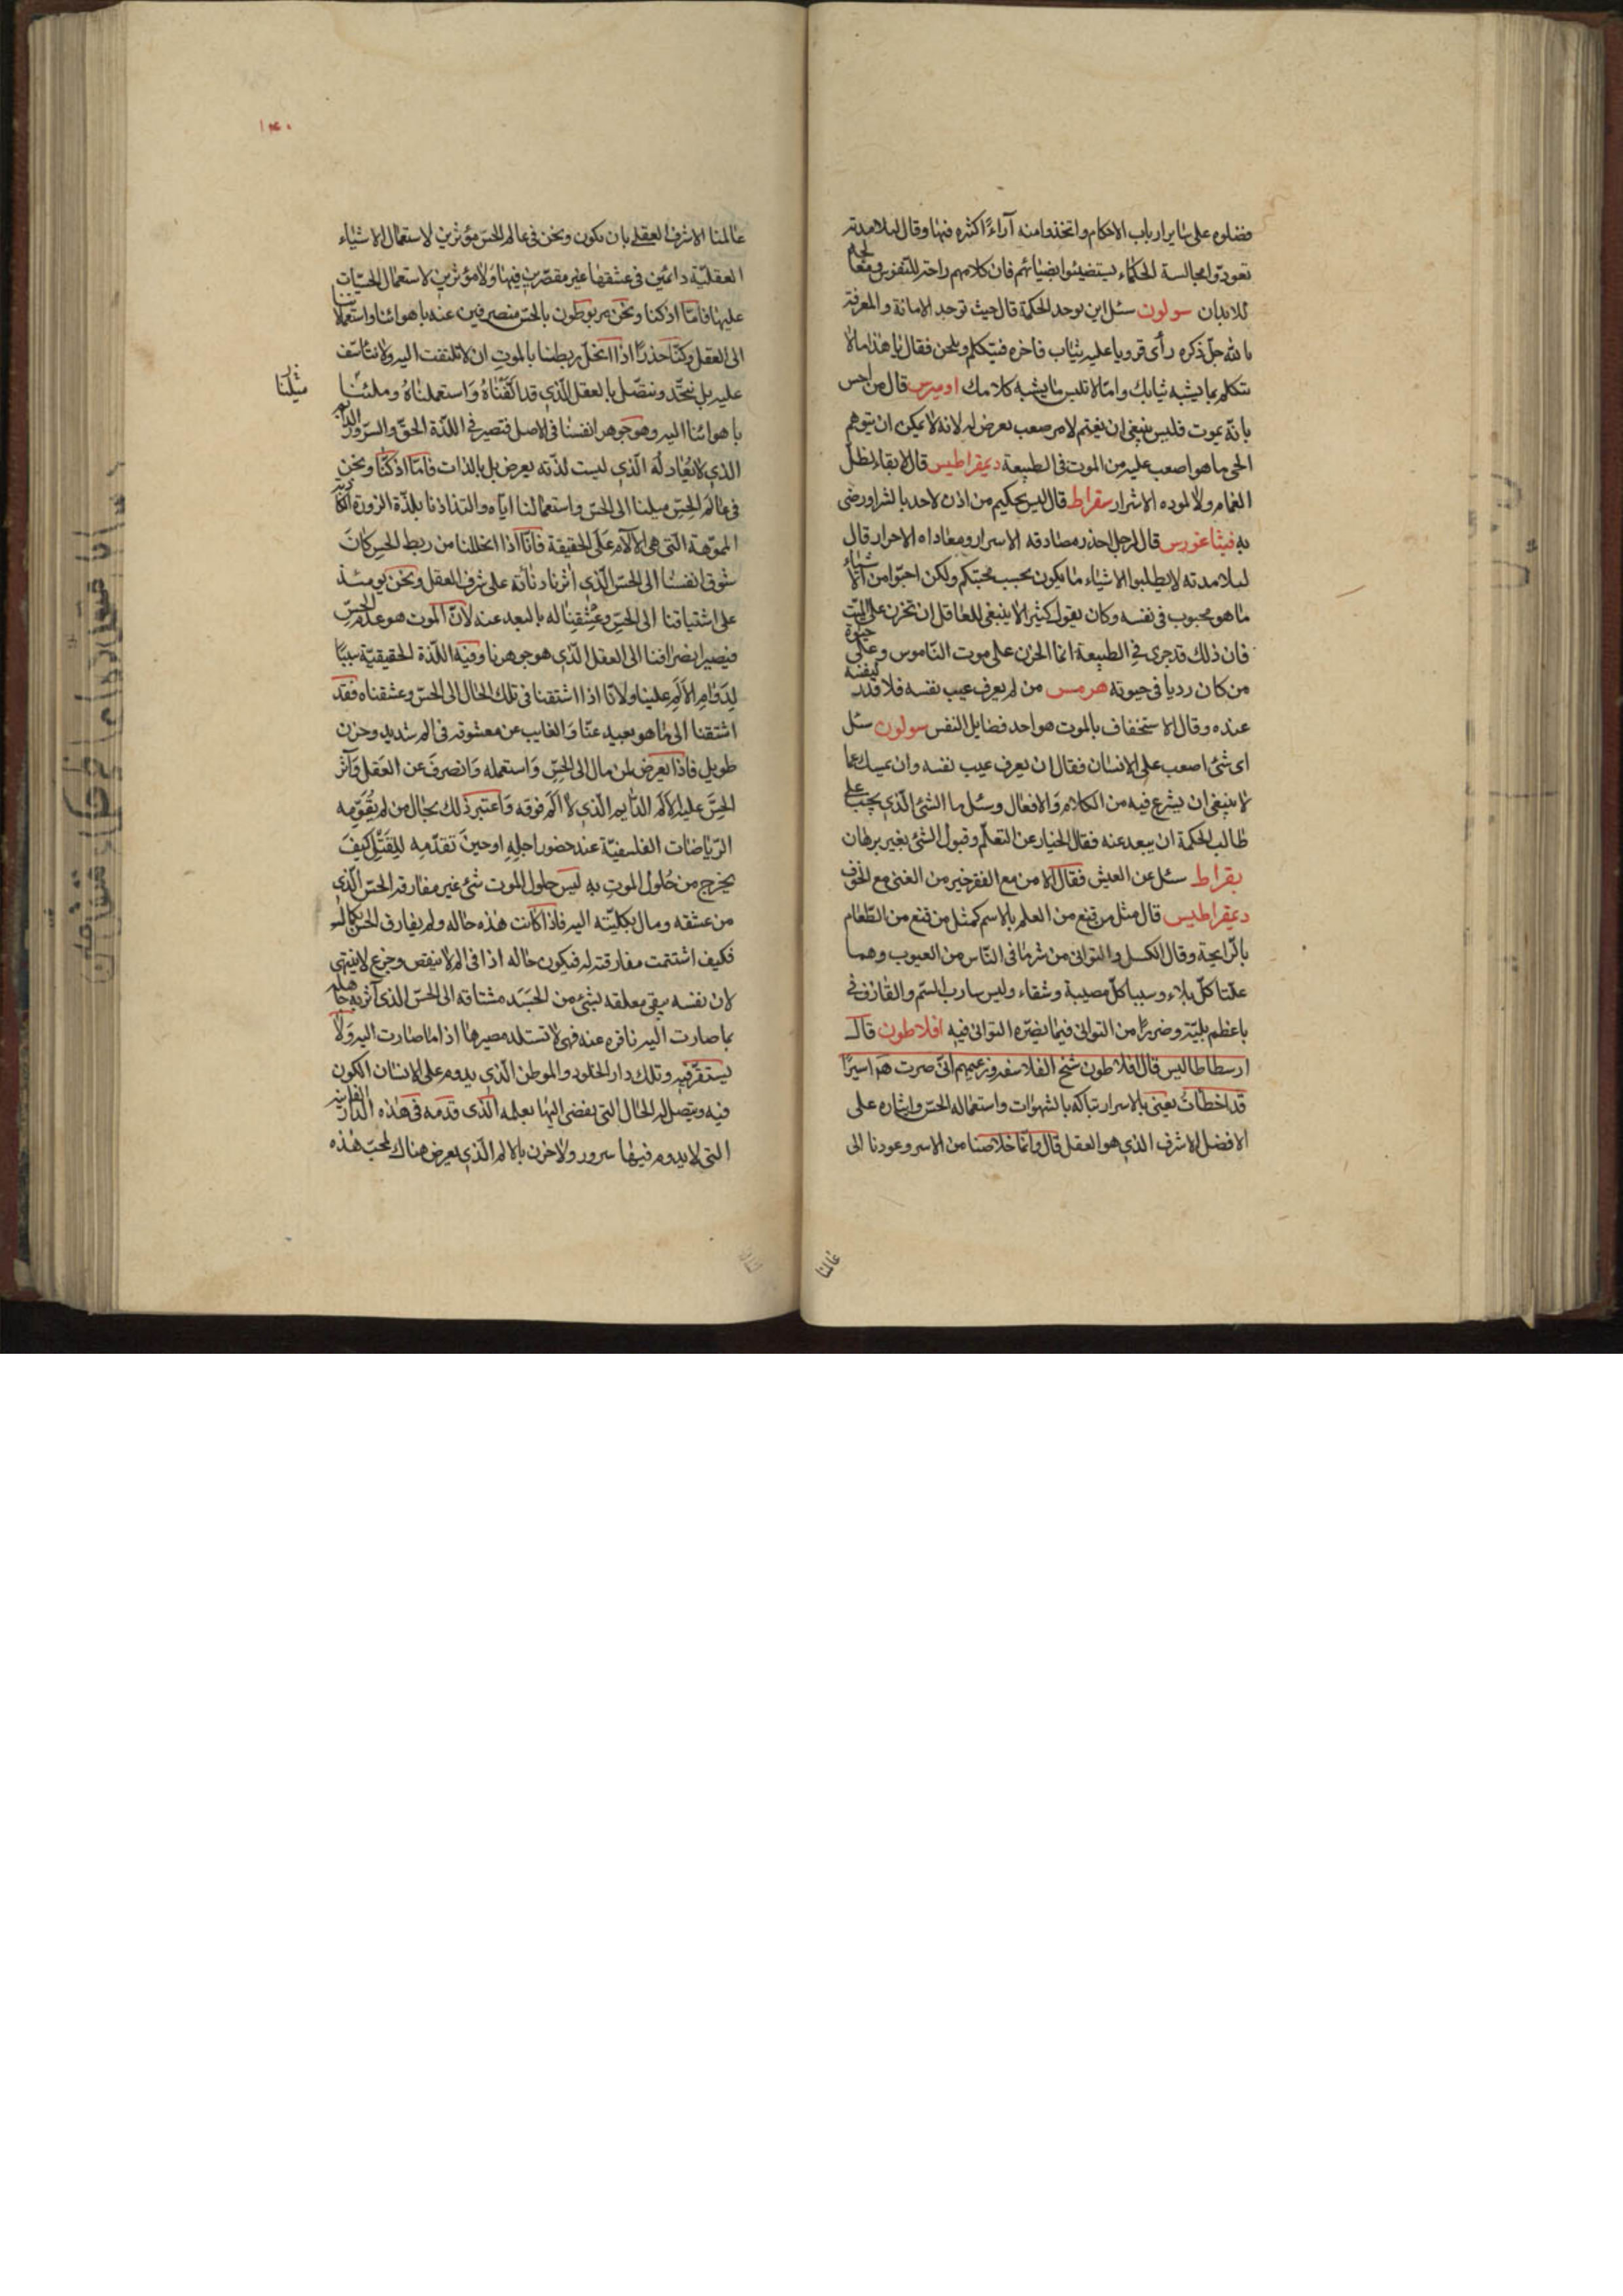 فضلوه على سایر ارباب الاحکام واتخذوا منه آراءً اکثره فیها وقال لتلامذته
تعودوا مجالسة الحکماء لیستضیئوا بضیائهم فان کلامهم راحة للنفوس
للابدان سولون سئل این توجد الحکمة قال حیث توجد الامانة والمعرفة
بالله جلّ ذکره رأی قرویا علیه ثیاب فاخرة فیتکلم ویلحن فقال یا هذا اما ان
تتکلم بما یشبه ثیابک واما ان تلبس ما یشبه کلامک اومیرس قال من احس
بانّه یموت فلیس ینبغی ان یغتم لامر صعب یعرض له لانه لا یمکن ان یتوهم
الحی ما هو اصعب علیه من الموت فی الطبیعة دیمقراطیس قال لا بقاء لظلّ
الغمام ولا لمودة الاشرار سقراط قال لیس بحکیم من اذن لاحد بالشر او رضی
به فیثاغورس قال لرجل احذر مصادقه الاسرار ومعاداه الاحرار قال
لتلامذته لا یطلبوا الاشیاء ما یکون بحسب محبتکم ولکن احبّوا من الاشیاء
ما هو محبوب فی نفسه وکان یقول کثیرا لا ینبغی للعاقل ان تحزن على المیّت
فان ذلک قد جرى فی الطبیعة انما الحزن على موت النّاموس وعلى حیوة
من کان ردیا فی حیوته هرمس من لم یعرف عیب نفسه فلا قدر لنفسه
عنده وقال الاستخفاف بالموت هو احد فضایل النفس سولون سئل
ای شئ اصعب على الانسان فقال ان یعرف عیب نفسه وان یمسک عما
لا ینبغی ان یشرع فیه من الکلام والافعال وسئل ما الشئ الّذی یجب على
طالب الحکمة ان یبعد عنه فقال الخیار عن التعلّم وقبول الشئ بغیر برهان
بقراط سئل عن العیش فقال الامن مع الفقر خیر من الغنى مع الخوف
دیمقراطیس قال مثل من قنع من العلم بالاسم کمثل من قنع من الطّعام
بالرایحة وقال الکسل والتوانی من شرّ ما فی النّاس من العیوب وهما
علّتا کلّ بلاء وسببا کلّ مصیبة وشقاء ولیس شارب السّم والقاذف
باعظم بلیّة وضررًا من التوانی فیما یضرّه التوانی فیه افلاطون قال
ارسطاطالیس قال افلاطون شیخ الفلاسفة وزعیمهم انّی صرت هم اسیرًا
قد اخطات یعنی بالاسر ارتباکه بالشهوات واستعماله الحسّ وایثاره على
الافضل الاشرف الذی هو العقل قال وانّما خلاصنا من الاسر وعودنا الى
عالمنا
۱۴۰
عالمنا الاشرف العقلی بان نکون ونحن فی عالم الحسّ مؤثرین لاستعمال الاشیاء
العقلیّة دائمین فی عشقها غیر مقصّرین فیها ولا مؤثرین لاستعمال الحسیّات
علیها فامّا اذ کنا ونحن مربوطون بالحسّ منصرفین عنه باهوائنا واستعمالاتنا
الى العقل وکنّا حذرًا اذا انحلّ ربطنا بالموت ان لا نلتفت الیه ولا نتأسّف
علیه بل نتّحد ونتصّل بالعقل الّذی قد الفناه واستعملناه وملنا
میلنا
باهوائنا الیه وهو جوهر انفسنا فی الاصل فتصیر فی اللذّة الحقّ والسرور الدائم
الذی لا یعاد له الّذی لیست لذّته بعرض بل بالذات فامّا اذ کنّا ونحن
فی عالم الحسّ میلنا الى الحسّ واستعمالنا ایّاه والتذاذنا بلذّة المزورة الکاذبة
المموّهة الّتی هی الآلام على الحقیقة فانّا اذا انحللنا من ربط الحس کان
شوق انفسنا الى الحسّ الّذی اثرنا دنائته على شرف العقل ونحن یومئذ
على اشتیاقنا الى الحسّ وعشقنا له بالبعد عنه لانّ الموت هو عدم الحسّ
فیصیر انصرافنا الى العقل الّذی هو جوهرنا وفیه اللذّة الحقیقیّة سببًا
لدوام الالم علینا ولانّا اذا اشتقنا فی تلک الحال الى الحسّ وعشقناه فقد
اشتقنا الى ما هو بعید عنّا والغایب عن معشوقه فی الم شدید وحزن
طویل فاذا یعرض لمن مال الى الحسّ واستعمله وانصرف عن العقل وآثر
الحسّ علیه الالم الدّایم الّذی لا الم فوقه واعتبر ذلک بحال من لم یُقوّمه
الرّیاضات الفلسفیّة عند حضور اجله او حین تقدّمه للقتل کیف
یخرج من حلول الموت به لیس حلول الموت شئ غیر مفارقة الحسّ الّذی
من عشقه ومال بکلیّته الیه فاذا کانت هذه حاله ولم یفارق الحسّ بکماله
فکیف اذا تمت مفارقته له فیکون حاله اذا فی الم لا ینقص وجزع لا ینتهی
لان نفسه یبقى معلقه لشئ من الجسد مشتاقه الى الحسّ الذی آثرته جاهله
بما صارت الیه نافره عنه فهی لا تستلد مصیرها اذا ما صارت الیه ولا
یستقرّ فیه وتلک دار الخلود والموطن الّذی یدوم على الانسان الکون
فیه ویتصل له الحال التی یفضی الیها بعلمه الّذی قدمه فی هذه الدّار الفانیة
التی لا یدوم فیها سرور ولا حزن بالالم الّذی یعرض هناک لمحبّ هذه